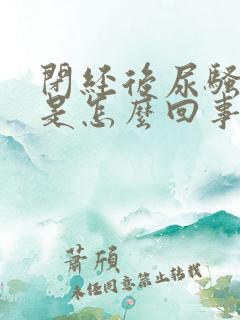 閉經後尿騷
是怎麼回事
蕭頎
未經同意禁止转载